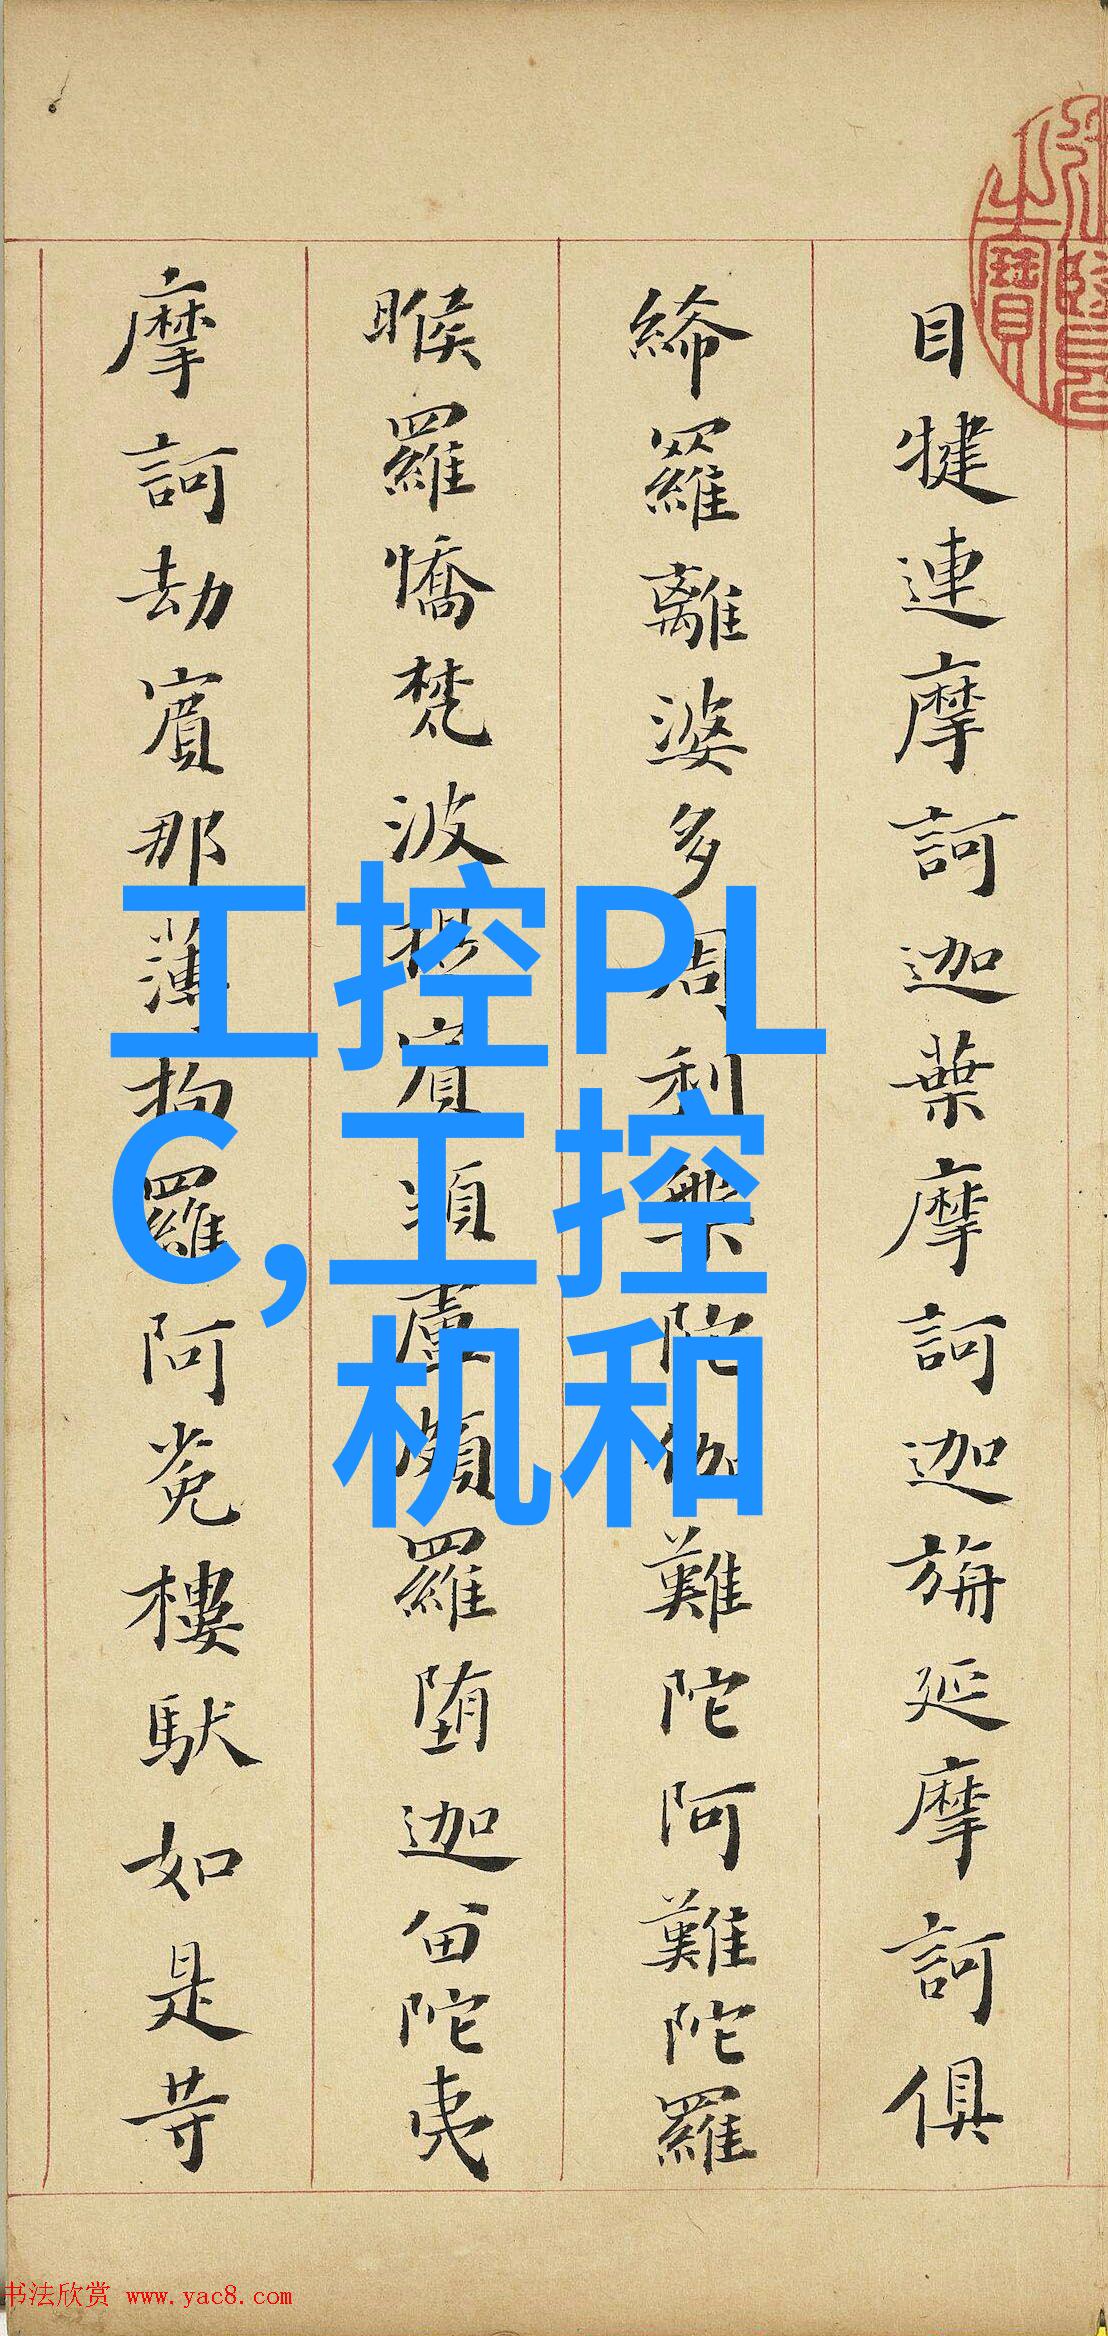 目犍連摩訶迦葉摩訶迦旃延摩訶俱
絺羅離婆多周利槃陀伽難陀阿難陀羅
睺羅憍梵波提賓頭盧頗羅墮迦留陀夷
摩訶劫賓那薄拘羅阿㝹樓馱如是等
之寶
工控PL
C,工控
机和
书法欣赏 www.yac8.com